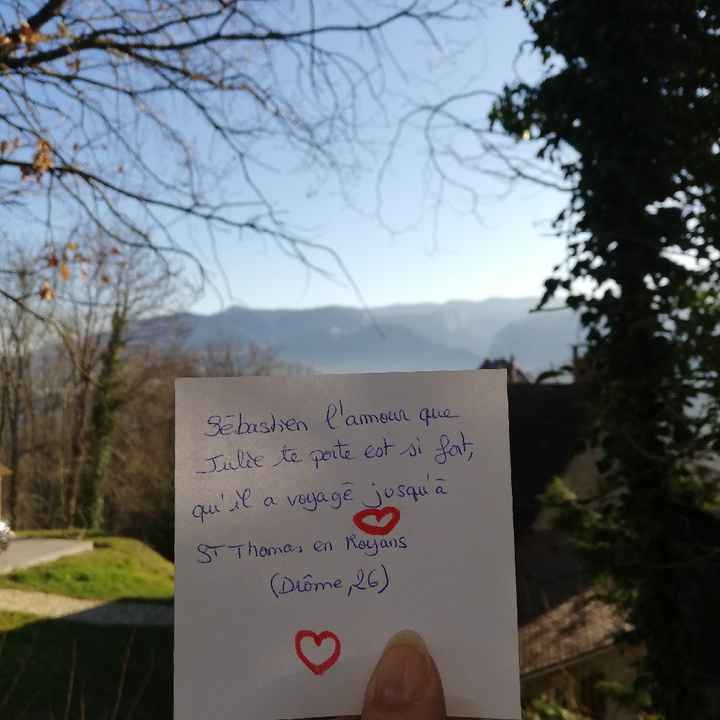 Sébastien l'amour que
Julie te porte est si fort,
qu'il a voyagé jusqu'à
ST Thomas en Royans
(Drôme, 26)